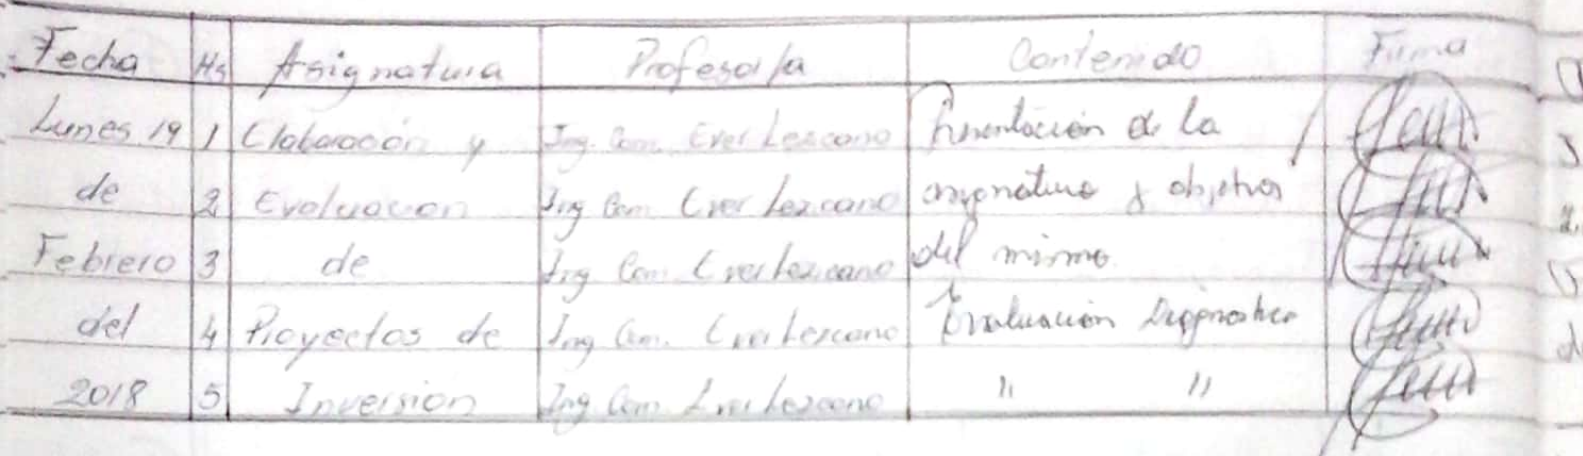 Fecha Hs Asignatura Profesor/a Contenido Firma
Lunes 19 1 Elaboración y Ing. Com. Ever Lezcano Presentación de la
de 2 Evaluacion Ing Com Ever Lezcano asignatura y objetivos
Febrero 3 de Ing Com Ever Lezcano del mismo.
del 4 Proyectos de Ing Com. Ever Lezcano Evaluación Diagnostica
2018 5 Inversion Ing. Com. Ever Lezcano " "